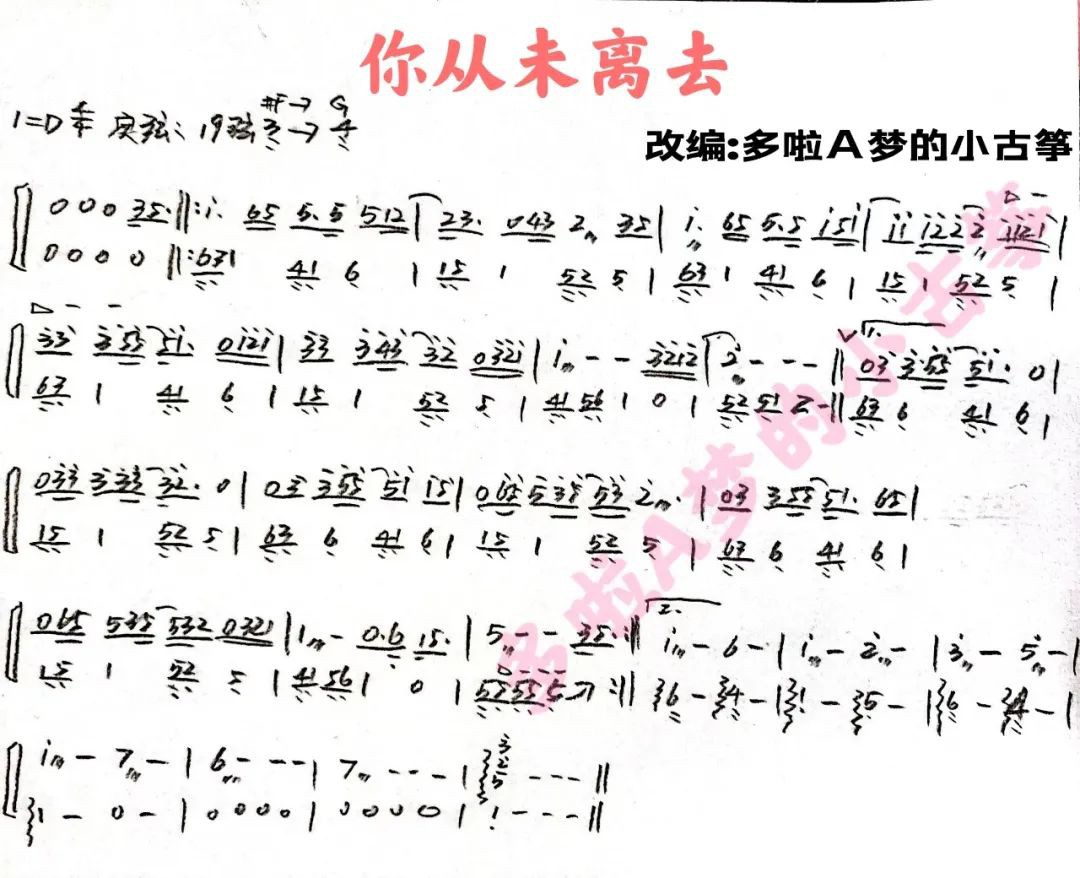 你从未离去
1=D 4/4 定弦: 19弦3→4
#F→G
改编:多啦A梦的小古筝
0 0 0 35. ‖: i. 65 5.5 512 | 23. 043 2 35 | i. 65 5.5 i5i | ii i22 2 ii2i |
0 0 0 0 ‖: 631 41 6 | 15 1 52 5 | 63 1 41 6 | 15 1 52 5 |
33 355 5i. 0i2i | 33 343 32 032i | i - - 32i2 | 2 - - - ‖ 1. 03 355 5i. 0 |
63 1 41 6 | 15 1 52 5 | 4156 1 0 | 52 51 2 - ‖ 63 6 41 6 |
033 333 32. 0 | 03 355 5i i5 | 065 535 53 2. | 03 355 5i. 65 |
15 1 52 5 | 63 6 41 6 | 15 1 52 5 | 63 6 41 6 |
065 535 532 0321 | 1 - 0.6 15. | 5 - - 35. :‖ 2. i - 6 - | i - 2 - | 3 - 5 - |
15 1 52 5 | 4156 1 0 | 52555 :‖ 6 - 4 - | 1 - 5 - | 6 - 4 - |
i - 7 - | 6 - - - | 7 - - - | 325 - - - ‖
1 - 0 - | 0 0 0 0 | 0 0 0 0 | 1 - - - ‖
多啦A梦的小古筝